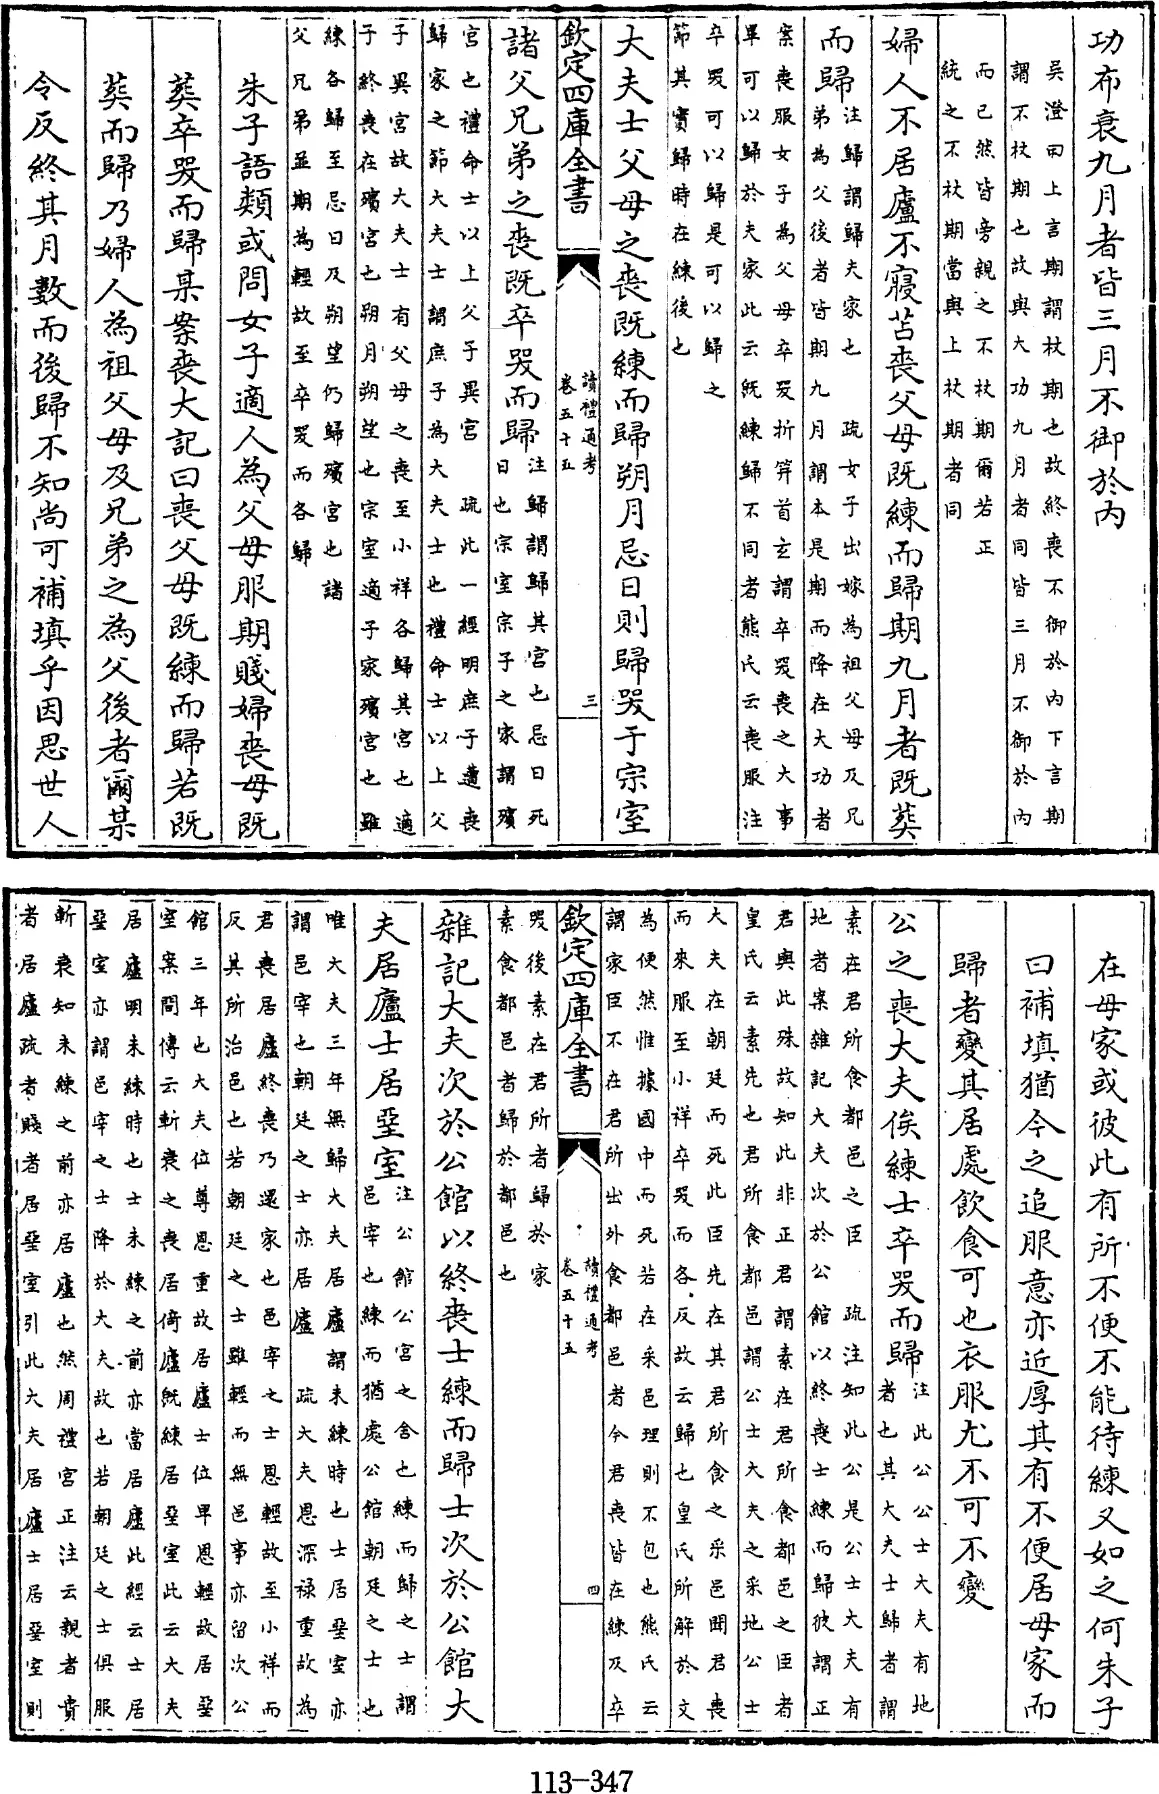 功布衰九月者皆三月不御於内
吳澄曰上言期謂杖期也故終喪不御於内下言期
謂不杖期也故與大功九月者同皆三月不御於内
而已然皆旁親之不杖期爾若正
統之不杖期當與上杖期者同
婦人不居廬不寢苫喪父母既練而歸期九月者既葬
而歸注歸謂歸夫家也 疏女子出嫁為祖父母及兄
弟為父後者皆期九月謂本是期而降在大功者
案喪服女子為父母卒哭折笄首玄謂卒哭喪之大事
畢可以歸於夫家此云既練歸不同者熊氏云喪服注
卒哭可以歸是可以歸之
節其實歸時在練後也
大夫士父母之喪既練而歸朔月忌日則歸哭于宗室
欽定四庫全書
讀禮通考
卷五十五
三
諸父兄弟之喪既卒哭而歸注歸謂歸其宮也忌日死
日也宗室宗子之家謂殯
宮也禮命士以上父子異宮 疏此一經明庶子遭喪
歸家之節大夫士謂庶子為大夫士也禮命士以上父
子異宮故大夫士有父母之喪至小祥各歸其宮也適
子終喪在殯宮也朔月朔望也宗室適子家殯宮也雖
練各歸至忌日及朔望仍歸殯宮也諸
父兄弟並期為輕故至卒哭而各歸
朱子語類或問女子適人為父母服期賤婦喪母既
葬卒哭而歸某案喪大記曰喪父母既練而歸若既
葬而歸乃婦人為祖父母及兄弟之為父後者爾某
令反終其月數而後歸不知尚可補填乎因思世人
在母家或彼此有所不便不能待練又如之何朱子
曰補填猶今之追服意亦近厚其有不便居母家而
歸者變其居處飲食可也衣服尤不可不變
公之喪大夫俟練士卒哭而歸注此公公士大夫有地
者也其大夫士歸者謂
素在君所食都邑之臣 疏注知此公是公士大夫有
地者案雜記大夫次於公館以終喪士練而歸彼謂正
君與此殊故知此非正君謂素在君所食都邑之臣者
皇氏云素先也君所食都邑謂公士大夫之采地公士
大夫在朝廷而死此臣先在其君所食之采邑聞君喪
而來服至小祥卒哭而各反故云歸也皇氏所解於文
為便然惟據國中而死若在采邑理則不包也熊氏云
謂家臣不在君所出外食都邑者今君喪皆在練及卒
欽定四庫全書
讀禮通考
卷五十五
四
哭後素在君所者歸於家
素食都邑者歸於都邑也
雜記大夫次於公館以終喪士練而歸士次於公館大
夫居廬士居堊室注公館公宮之舍也練而歸之士謂
邑宰也練而猶處公館朝廷之士也
唯大夫三年無歸大夫居廬謂未練時也士居堊室亦
謂邑宰也朝廷之士亦居廬 疏大夫恩深禄重故為
君喪居廬終喪乃還家也邑宰之士恩輕故至小祥而
反其所治邑也若朝廷之士雖輕而無邑事亦留次公
館三年也大夫位尊恩重故居廬士位卑恩輕故居堊
室案間傳云斬衰之喪居倚廬既練居堊室此云大夫
居廬明未練時也士未練之前亦當居廬此經云士居
堊室亦謂邑宰之士降於大夫故也若朝廷之士俱服
斬衰知未練之前亦居廬也然周禮宮正注云親者貴
者居廬疏者賤者居堊室引此大夫居廬士居堊室則
113-347